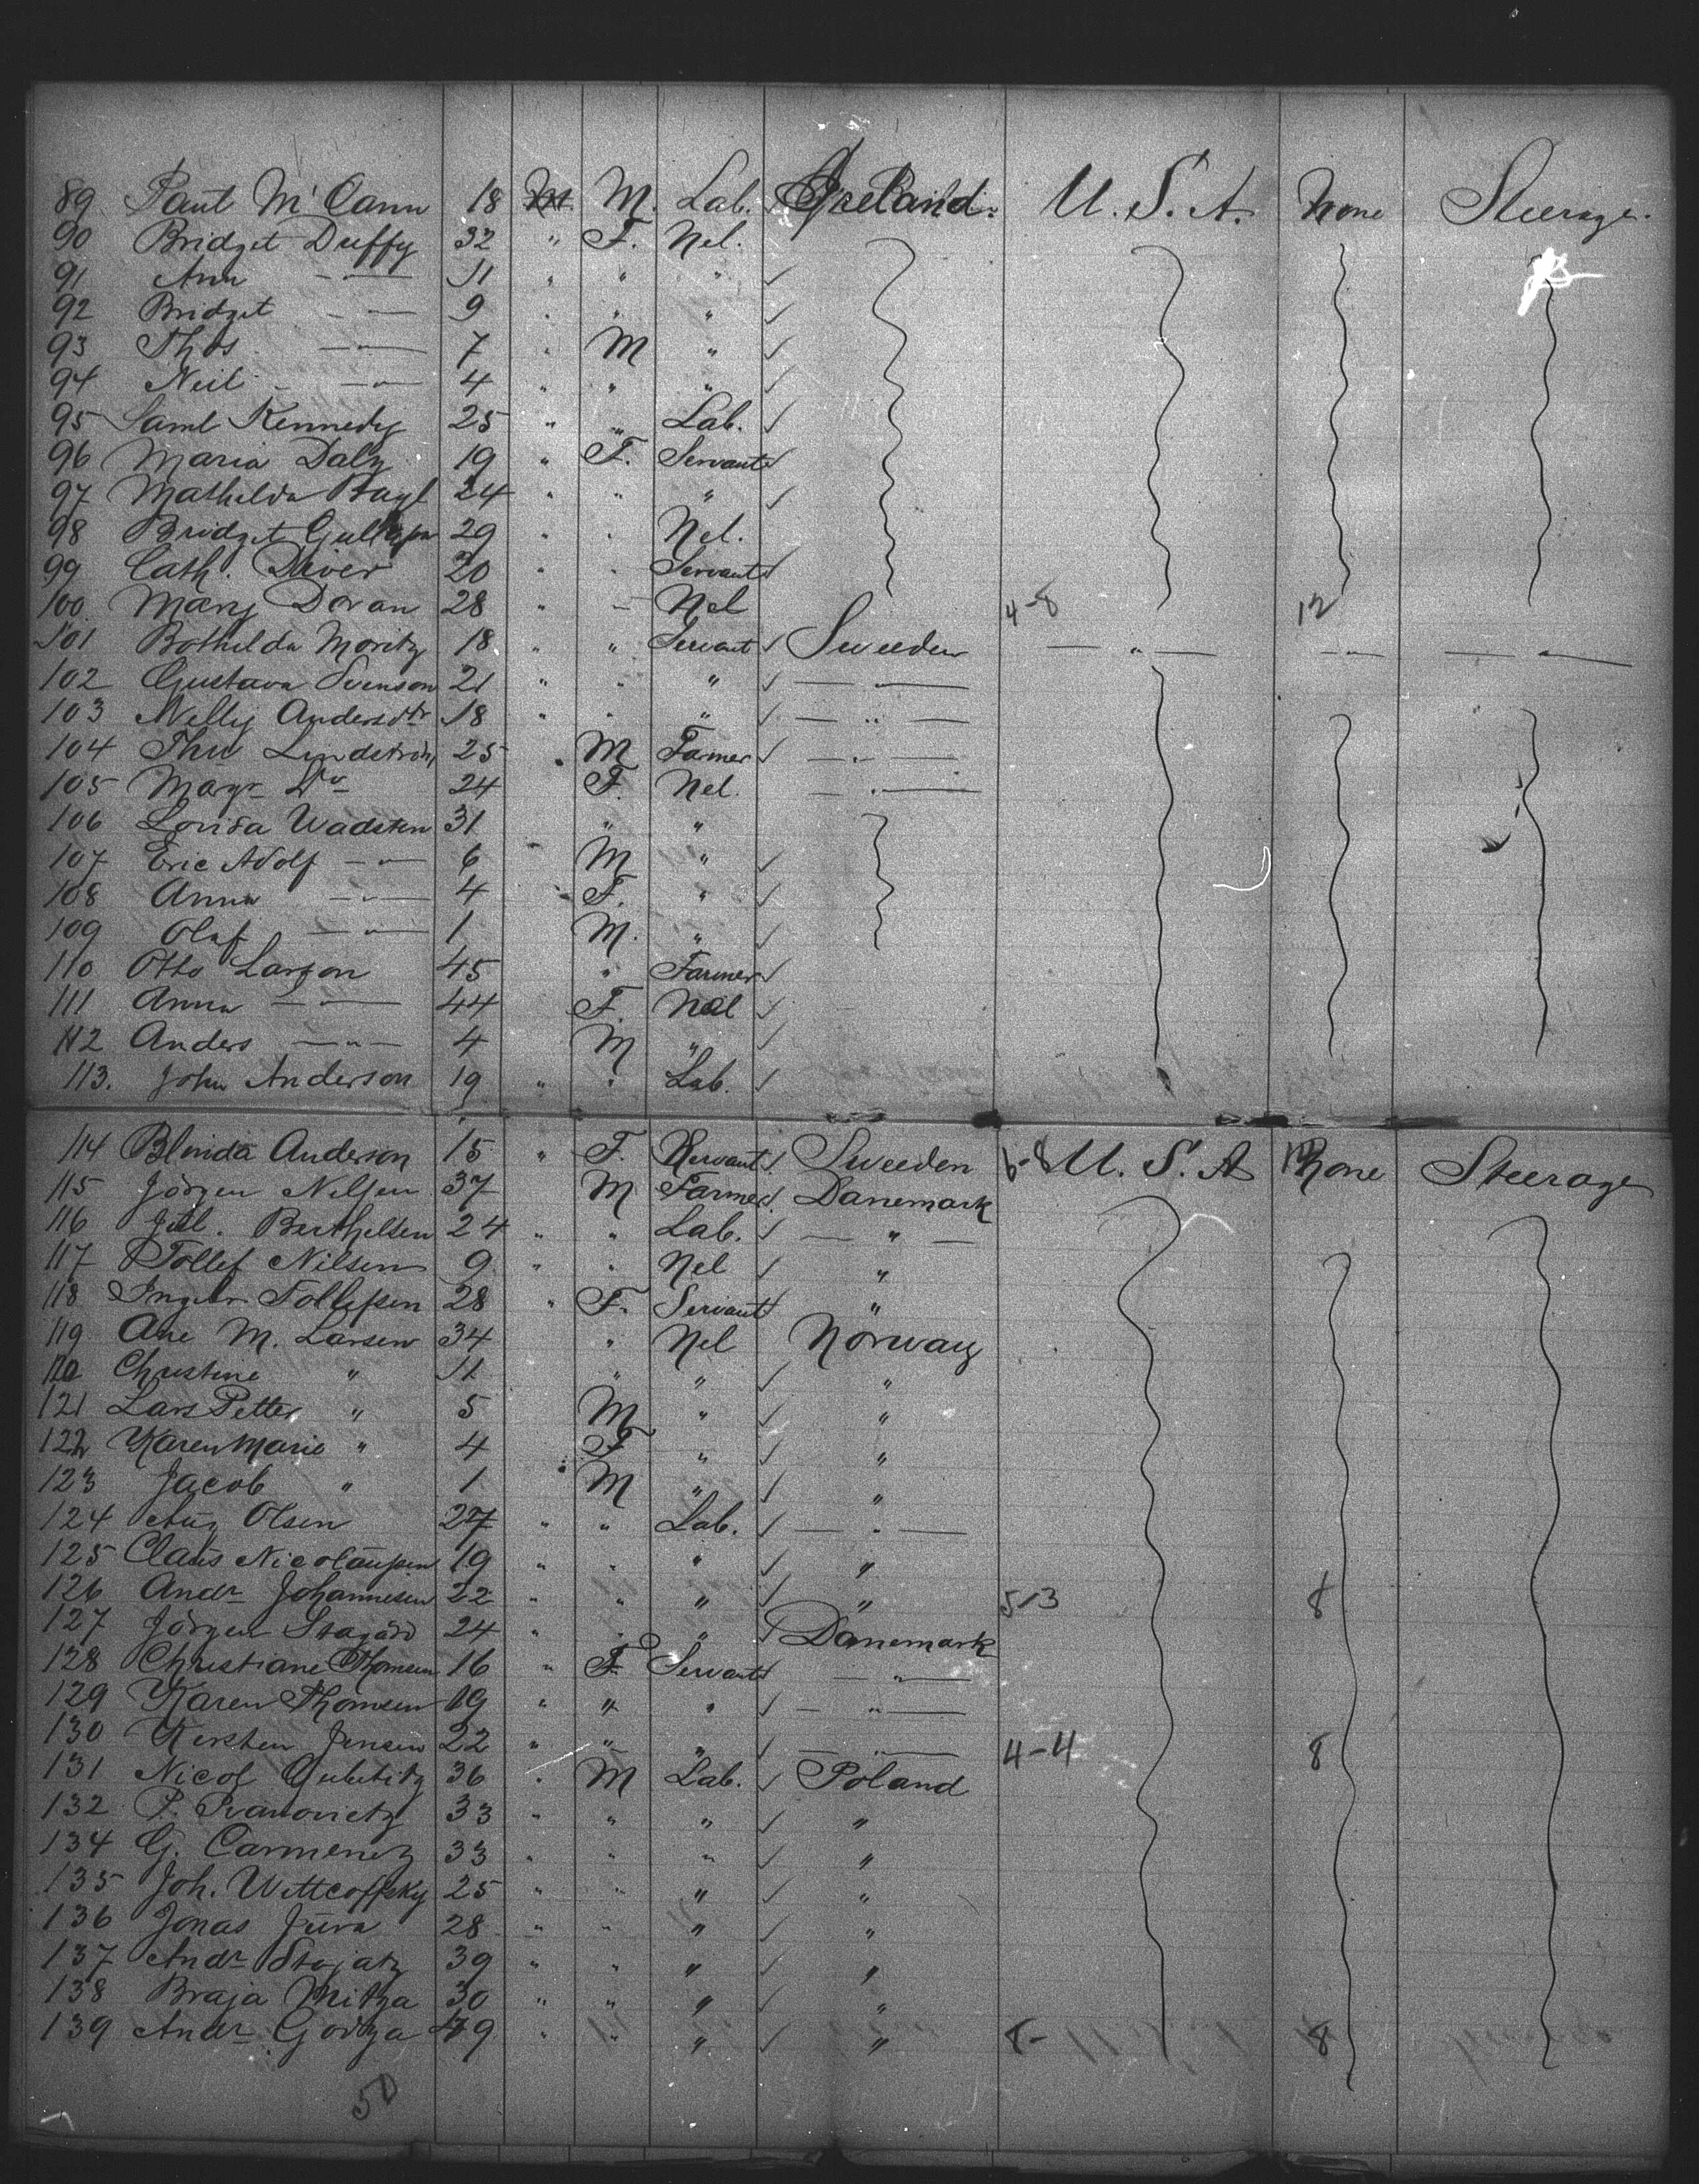 89 Paul McCann 18 M. Lab. Ireland. U.S.A. None Steerage.
90 Bridget Duffy 32 " F. Nel.
91 Ann — " — 11 " " "
92 Bridget — " — 9 " " "
93 Thos — " — 7 " M "
94 Neil — " — 4 " " "
95 Saml Kennedy 25 " " Lab.
96 Maria Daly 19 " F. Servant
97 Mathilda 24 " " "
98 Bridget 29 " " Nel.
99 Cath. Diver 20 " " Servant
100 Mary Doran 28 " " Nel 4-8 12
101 Bothilda Moritz 18 " " Servant Sweeden — " — — " — — " —
102 Gustava Svenson 21 " " " — " —
103 Nelly Andersdtr 18 " " " — " —
104 Lindström 25 " M Farmer — " —
105 Margr Do 24 F. Nel. — " —
106 Lovisa Wadsten 31 " "
107 Eric Adolf — " — 6 M "
108 Anna — " — 4 F. "
109 Olaf — " — 1 M. "
110 Otto Larson 45 " Farmer
111 Anna — " — 44 F. Nel
112 Anders — " — 4 M "
113. John Anderson 19 " " Lab.
114 Blinda Anderson 15 " F. Servant Sweeden 6-8 U.S.A None 12 Steerage
115 Jörgen Nelsen 37 M Farmer Danemark
116 Jul. Berthelsen 24 " " Lab. — " —
117 Tollef Nilsen 9 " " Nel "
118 Inger Tollefsen 28 " F. Servant "
119 Ane M. Larsen 34 " Nel Norway
120 Christine " 11 " " "
121 Lars Petter " 5 M " "
122 Karen Marie " 4 F " "
123 Jacob " 1 M " "
124 Aug Olsen 27 " " Lab. — " —
125 Claus Nicolaussen 19 " " " "
126 Andr Johannesen 22 " " " " 5-3 8
127 Jörgen Stagård 24 " " " Danemark
128 Christiane Thomsen 16 " F Servant — " —
129 Karen Thomsen 19 " " " — " —
130 Kersten Jensen 22 " " " — " — 4-4 8
131 Nicol 36 " M Lab. Poland
132 P. Ivanovietz 33 " " " "
134 G. Carmenetz 33 " " " "
135 Joh. Wittcoffsky 25 " " " "
136 Jonas Jura 28 " " " "
137 Andr Stojatz 39 " " " "
138 Braja Mitza 30 " " " "
139 Andr Godza 49 " " " " 8- 8
50